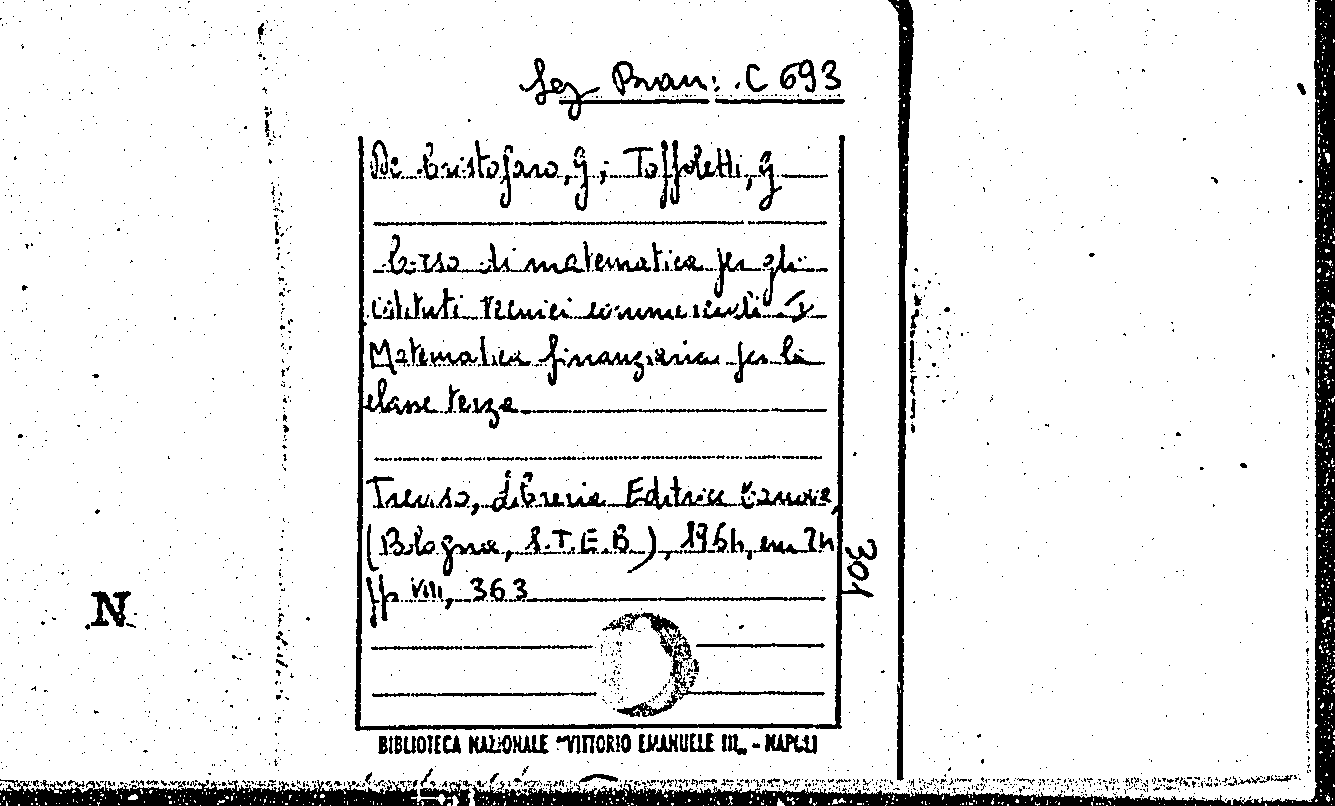 Sez Bran: C 693
De Cristofaro, G; Toffoletti, G
Corso di matematica per gli
istituti tecnici commerciali I
Matematica finanziaria per la
classe terza
Treviso, Libreria Editrice Canova,
(Bologna, S.T.E.B), 1964, cm 24
pp VIII, 363
301
N
BIBLIOTECA NAZIONALE "VITTORIO EMANUELE III„ - NAPOLI